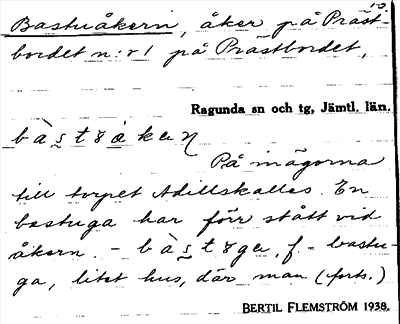 10.
Bastuåkern, åker på Präst-
bordet n:r 1 på Prästbordet,
Ragunda sn och tg, Jämtl. län.
På inägorna
till torpet Adillskalles. En
bastuga har förr stått vid
åkern. - f. - bastu-
ga, litet hus, där man (forts.)
BERTIL FLEMSTRÖM 1938.